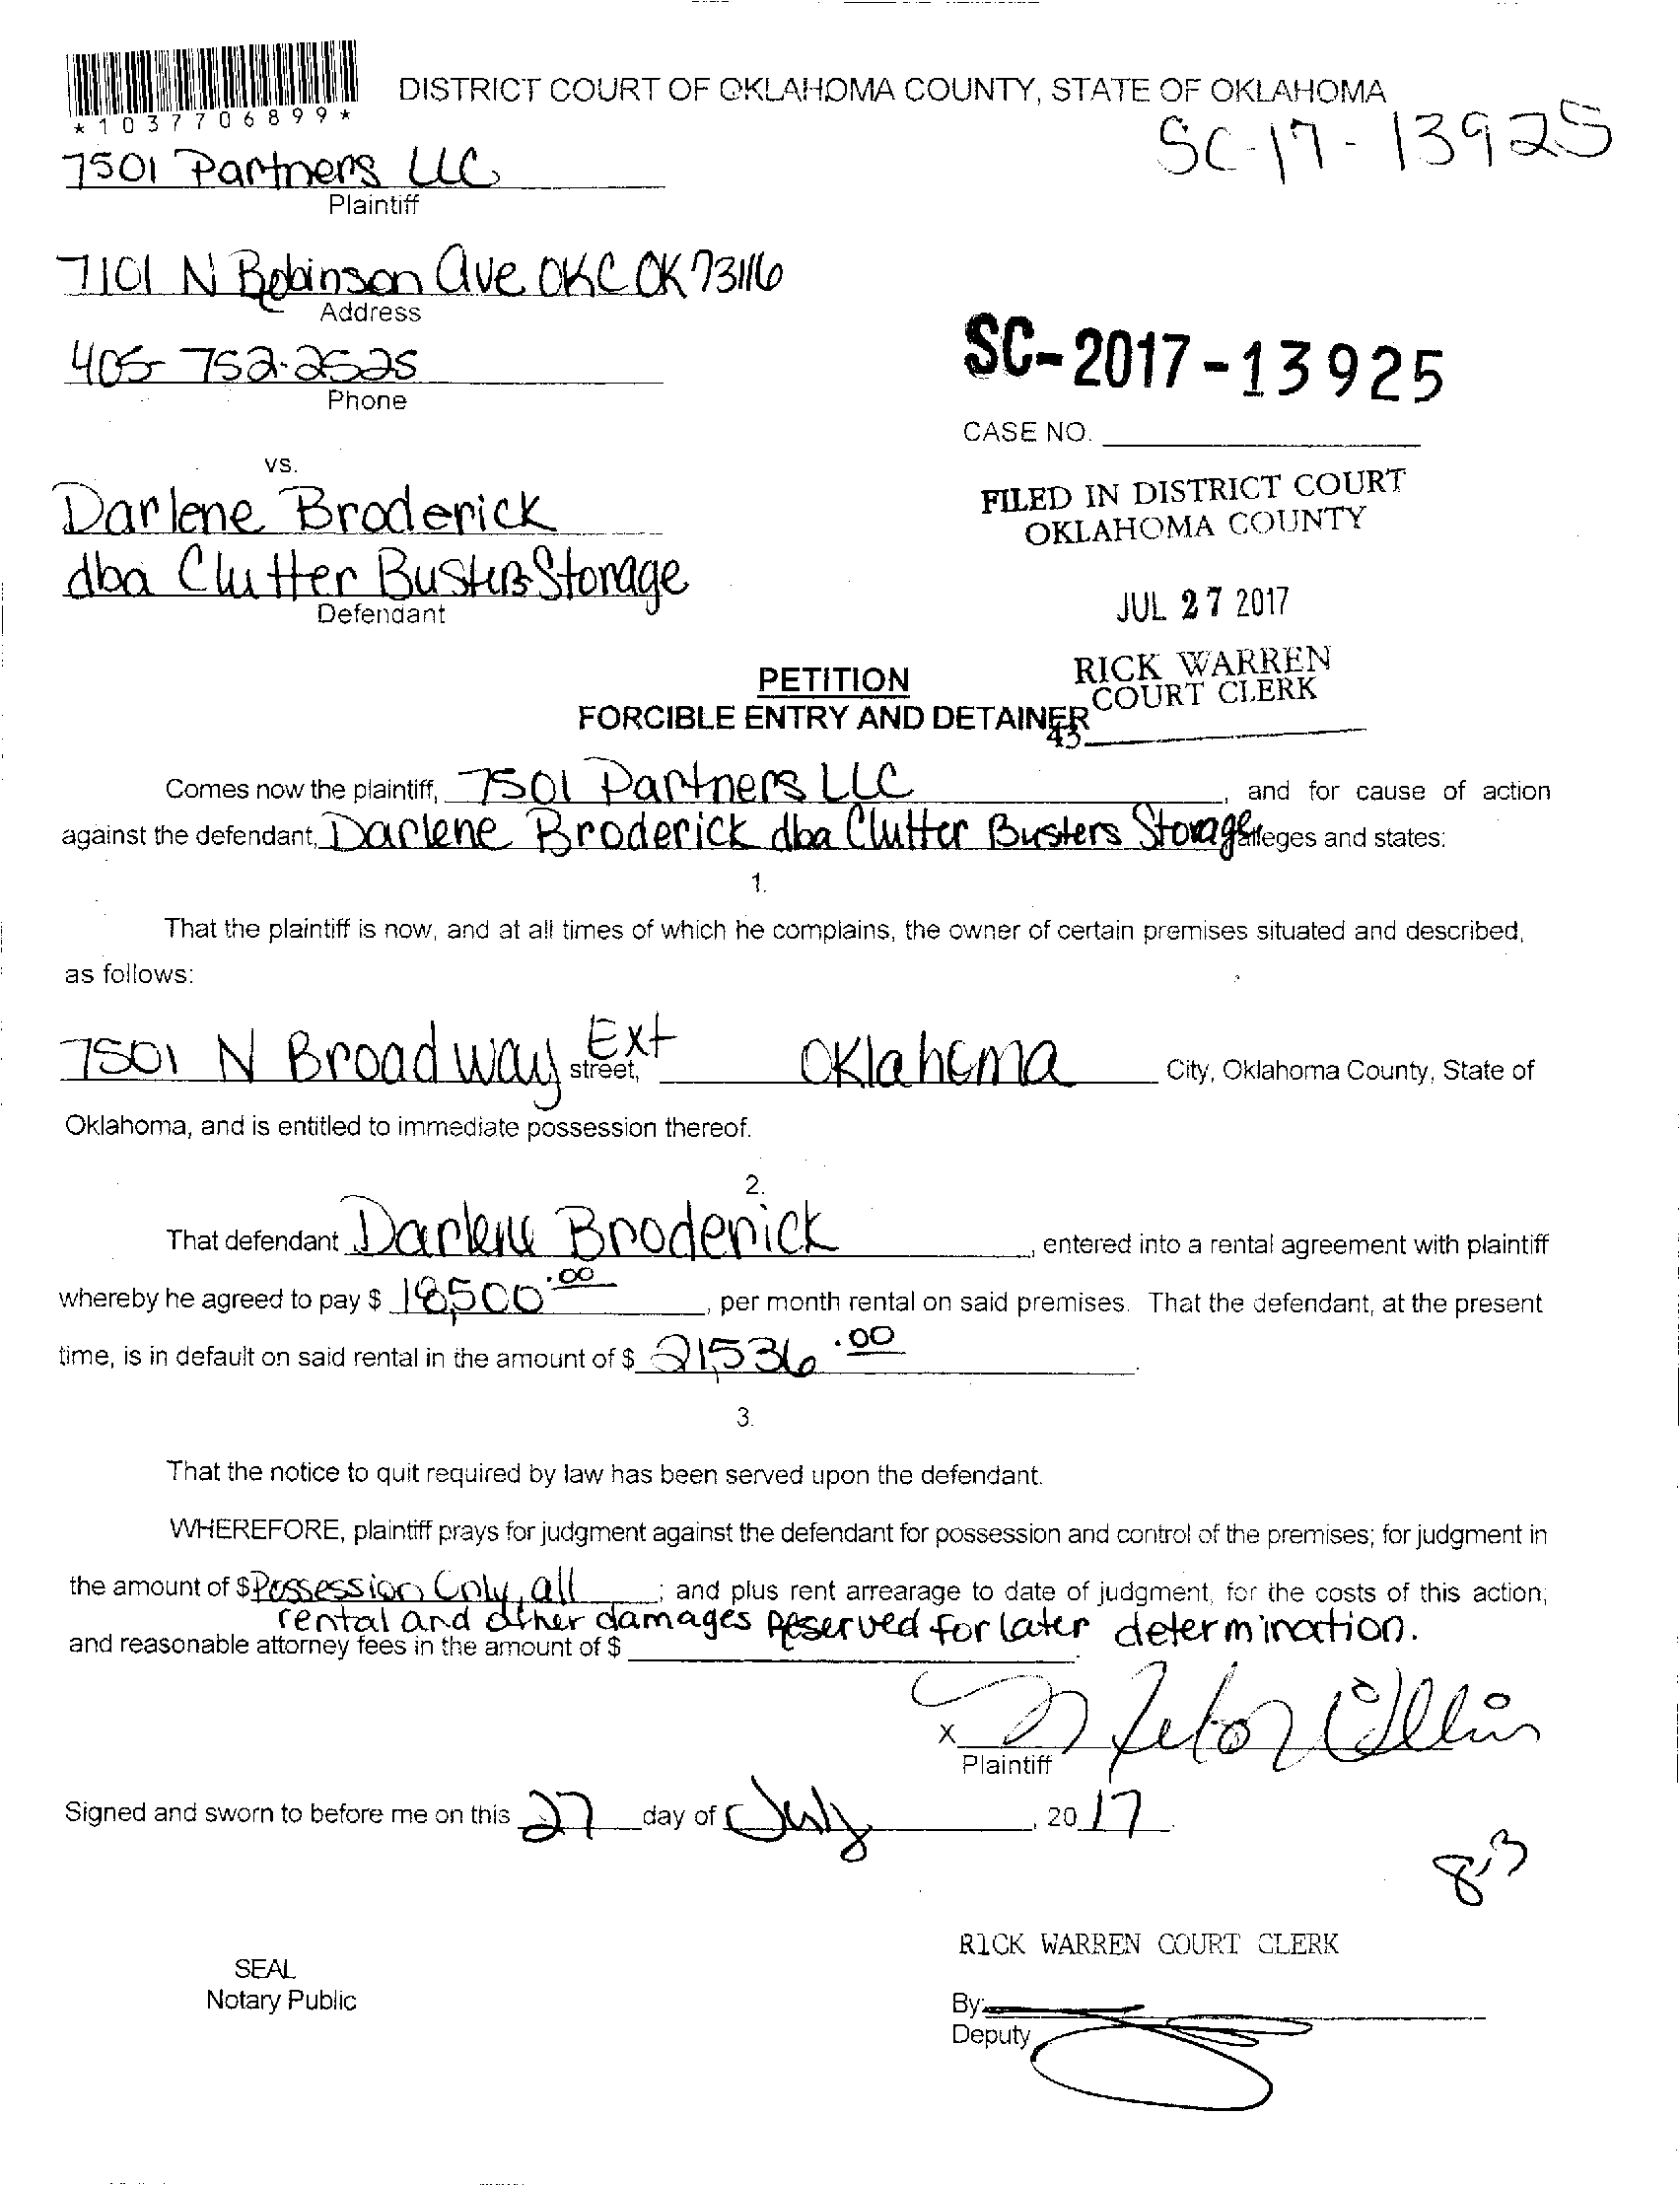 DISTRICT COURT OF OKLAHOMA COUNTY, STATE OF OKLAHOMA
*1037706899*
SC-17-13925
7501 Partners LLC
Plaintiff
7101 N Robinson Ave OKC OK 73116
Address
405-752-2525
Phone
SC-2017-13925
CASE NO.
vs.
Darlene Broderick
dba Clutter Busters Storage
Defendant
FILED IN DISTRICT COURT
OKLAHOMA COUNTY
JUL 27 2017
RICK WARREN
COURT CLERK
43
PETITION
FORCIBLE ENTRY AND DETAINER
Comes now the plaintiff, 7501 Partners LLC, and for cause of action
against the defendant, Darlene Broderick dba Clutter Busters Storage alleges and states:
1.
That the plaintiff is now, and at all times of which he complains, the owner of certain premises situated and described,
as follows:
7501 N Broadway Ext street, Oklahoma City, Oklahoma County, State of
Oklahoma, and is entitled to immediate possession thereof.
2.
That defendant Darlene Broderick, entered into a rental agreement with plaintiff
whereby he agreed to pay $ 18,500.00, per month rental on said premises. That the defendant, at the present
time, is in default on said rental in the amount of $ 21,536.00.
3.
That the notice to quit required by law has been served upon the defendant.
WHEREFORE, plaintiff prays for judgment against the defendant for possession and control of the premises; for judgment in
the amount of $ Possession Only, all; and plus rent arrearage to date of judgment, for the costs of this action;
rental and other damages reserved for later determination.
and reasonable attorney fees in the amount of $
X
Plaintiff
Signed and sworn to before me on this 27 day of July, 2017.
8-3
RICK WARREN COURT CLERK
SEAL
Notary Public
By:
Deputy